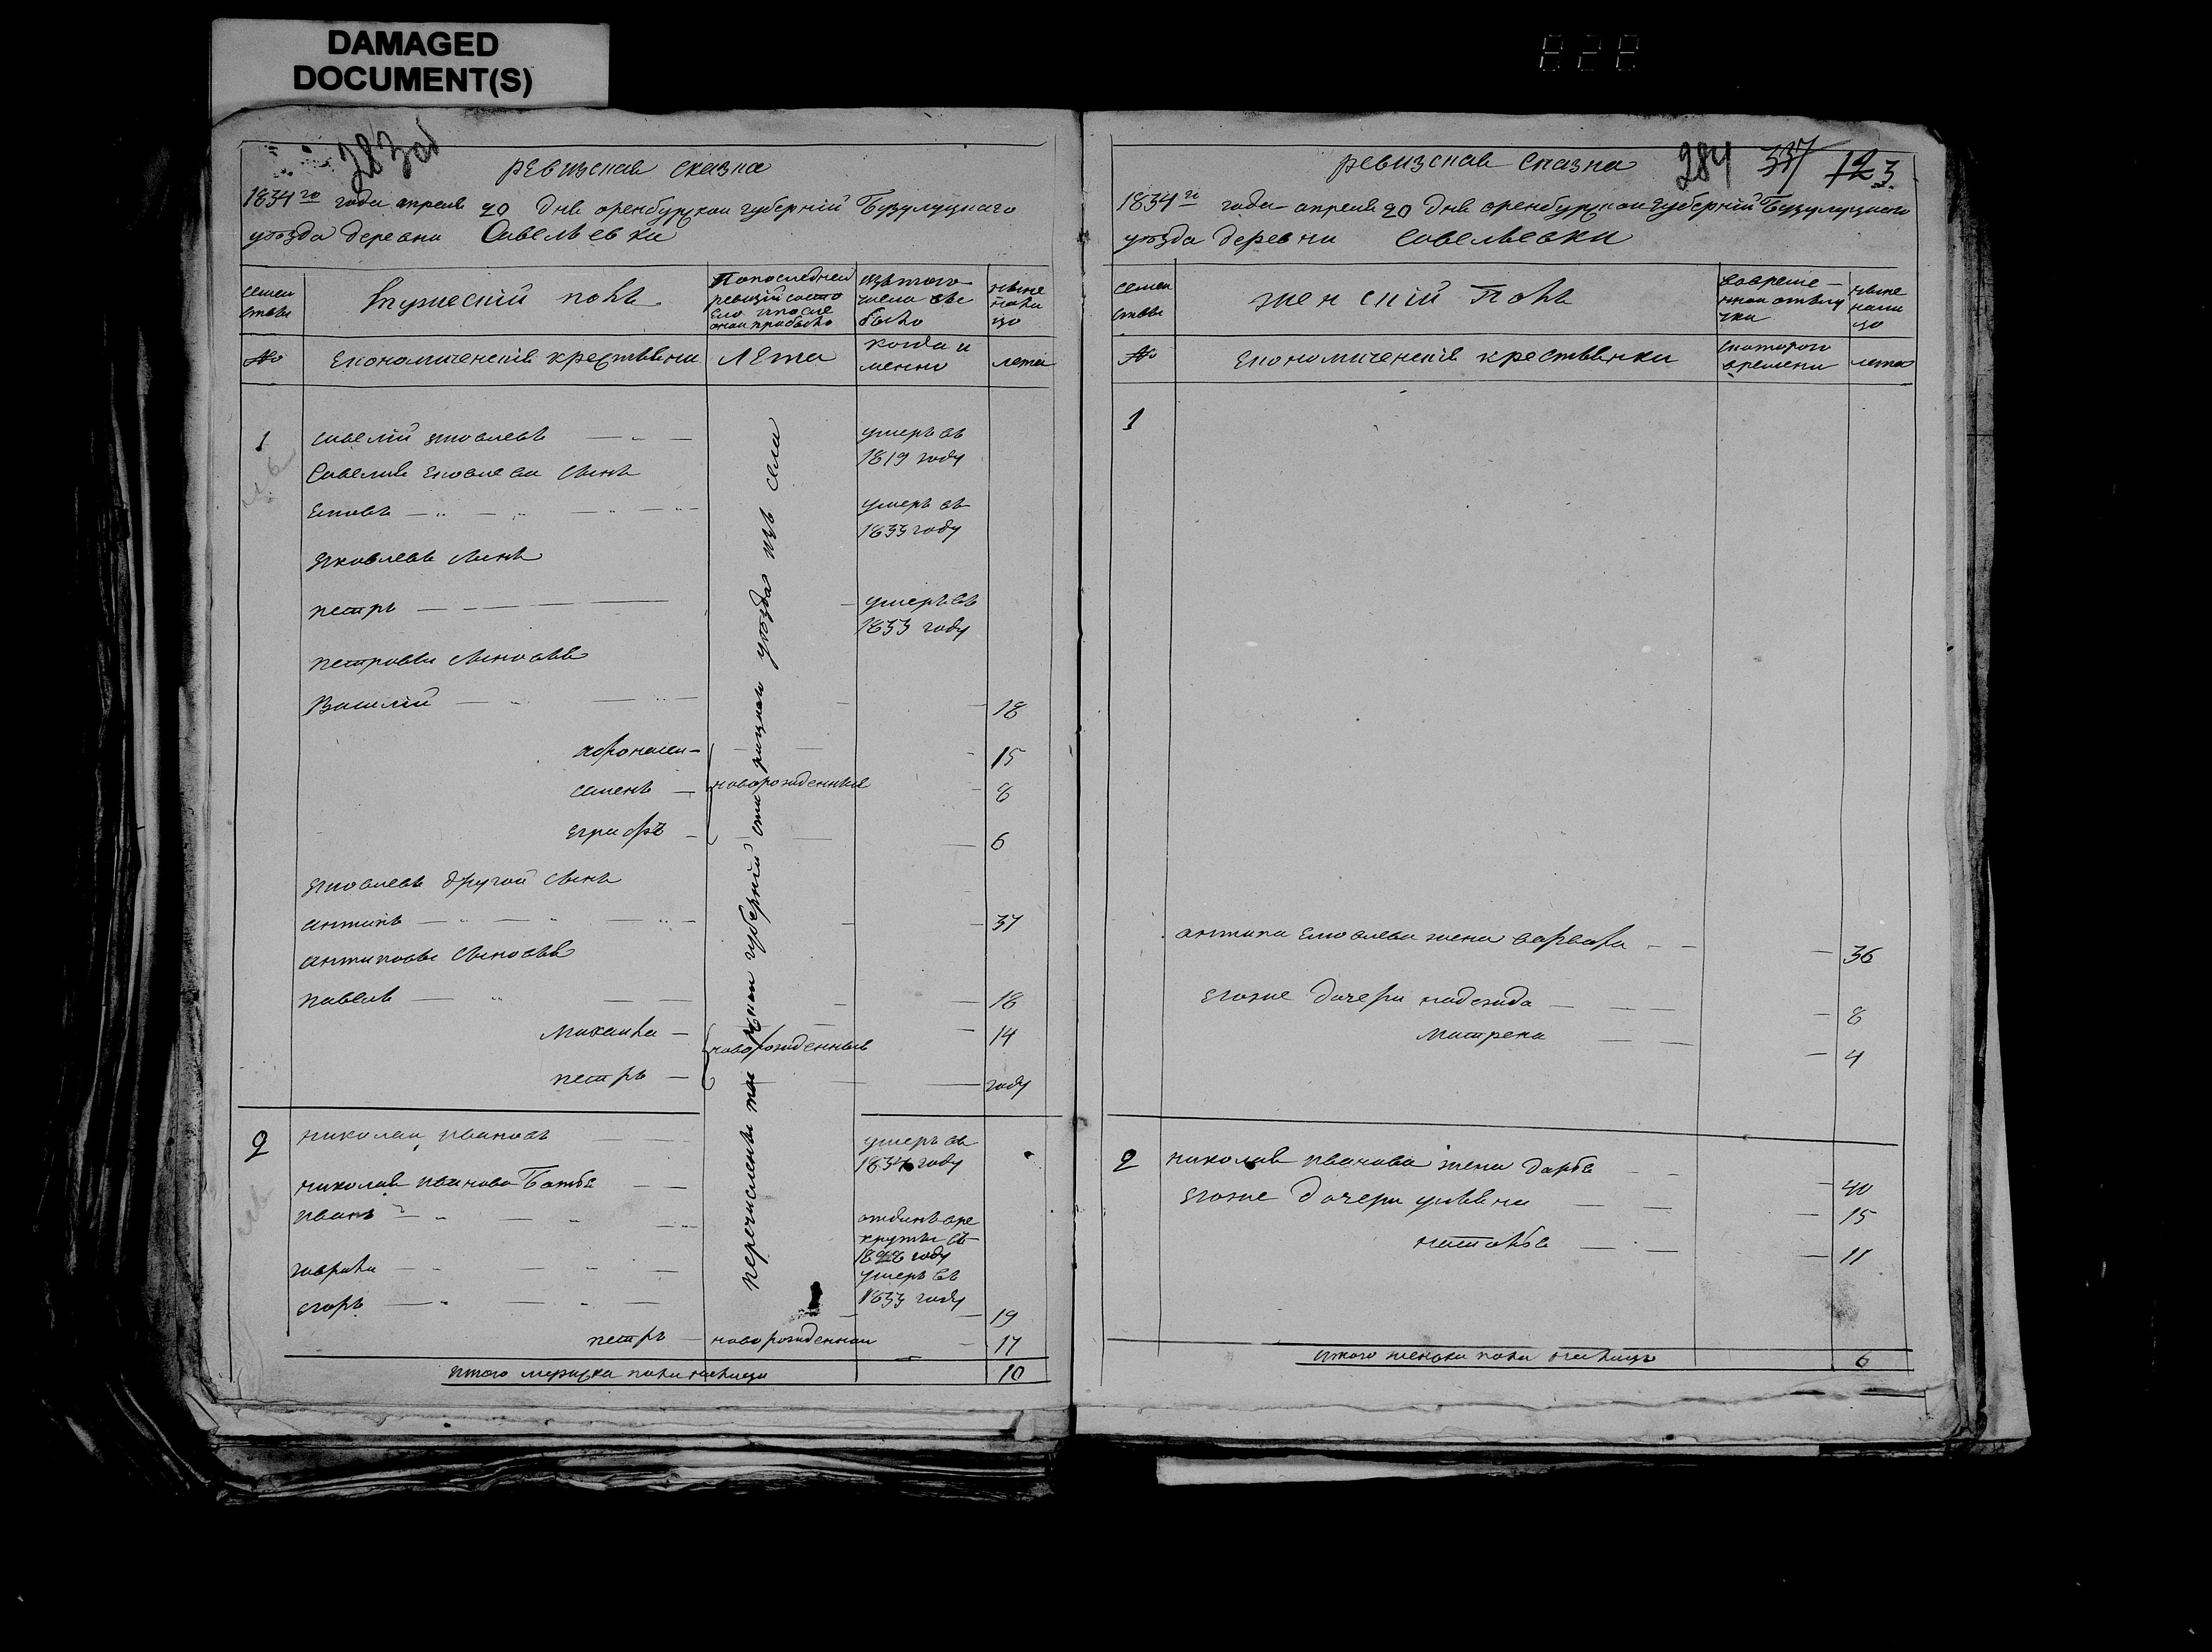 DAMAGED
DOCUMENT(S)
283 об
ревизская сказка
1834го года апреля 20 дня оренбурской губерній Бузулуцкаго
уѣзда деревни Савельевки
семей
ства
мужескій полъ
Попоследней
ревизій состо
яло ипосле
оной прибыло
изътого
числа вы
было
ныне
нали
цо
№
Економическія крестьяни
Лета
когда и
менно
лета
1
савелій яковлевъ
умеръ въ
1819 году
Савелия яковлева сынъ
яковъ
умеръ въ
1833 году
яковлевъ сынъ
петръ
умеръ въ
1833 году
петровы сыновья
Василій
18
афонасей
15
семенъ
новорожденныя
8
ягрифъ
6
яковлевъ другой сынъ
антипъ
37
антиповы сыновья
павелъ
18
михаила
новорожденныя
14
петръ
году
перечислены губерній уѣзда изъ села
2
николай ивановъ
умеръ въ
1834 году
николая иванова Батья
иванъ
отданъ вре
круты въ
1828 году
гаврила
умеръ въ
1833 году
егоръ
19
петръ
новорожденнои
17
итого мужска пола налицо
10
ревизская сказка
284 337 12 3
1834го года апреля 20 дня оренбурской губерній Бузулуцкаго
уѣзда деревни Савельевки
семей
ства
женскій Полъ
вовреме-
нной отлу
чки
ныне
нали
цо
№
Економическія крестьянки
скоторого
времени
лета
1
антипа яковлева жена варвара
36
егоже дочери надежда
8
матрена
4
2
николая иванова жена дарья
40
егоже дочери ульяна
15
наталья
11
итого женска пола налицо
6